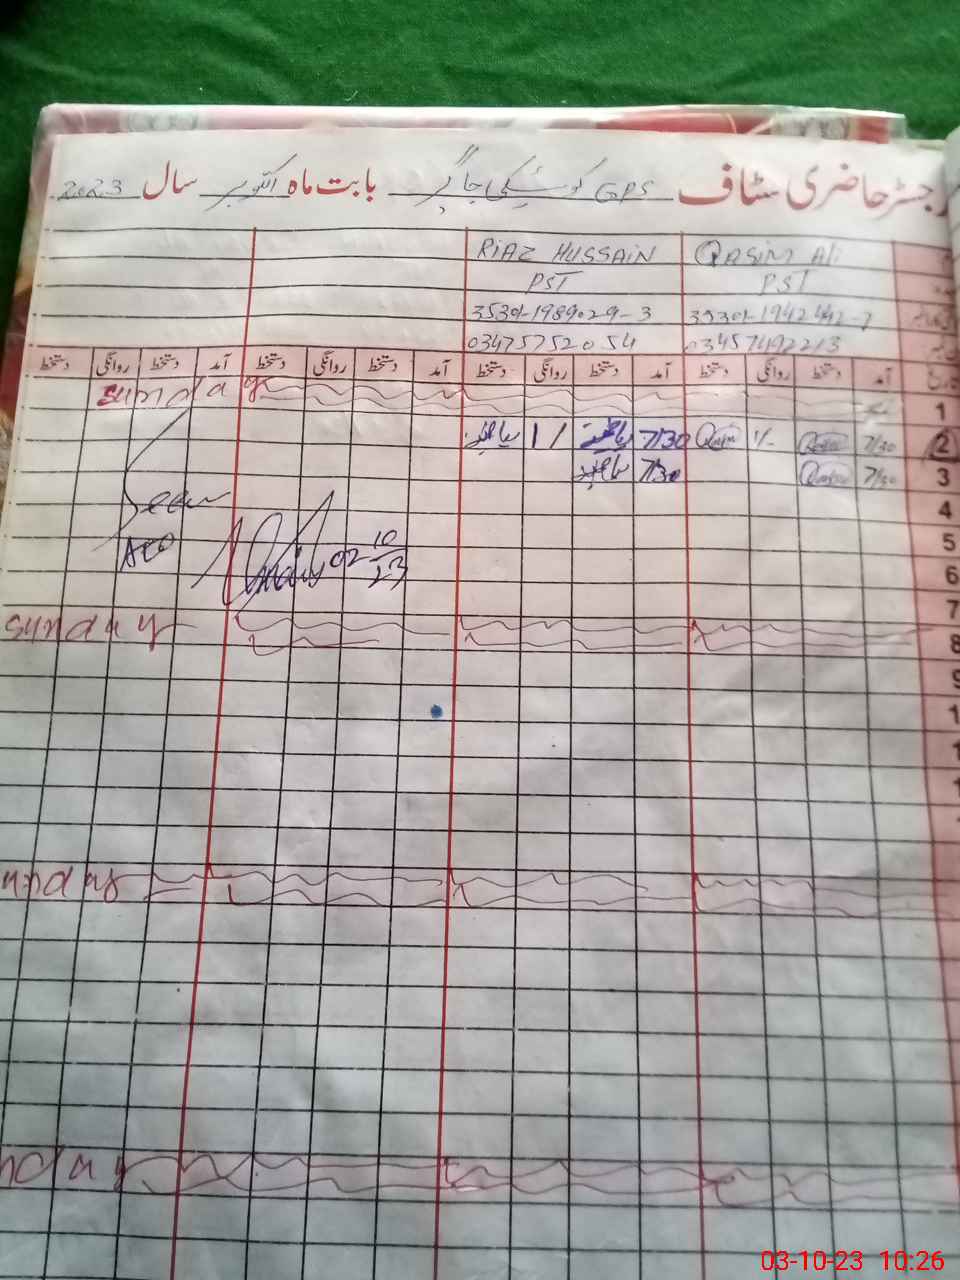 رجسٹر حاضری سٹاف GPS بابت ماہ اکتوبر سال 2023
Qasim Ali RIAZ HUSSAIN
PST PST
03475752054 03457492213
آمد دستخط روانگی دستخط آمد دستخط روانگی دستخط آمد دستخط روانگی دستخط آمد دستخط روانگی دستخط
1 Sunday
2 7/30 Qasim 1/- Qasim 7/30 ریاض 1/ ریاض
3 7/30 Qasim 7/30
4 Seen
5 AEO 02 10/23
6
7
8 Sunday
9
Sunday
nday
03-10-23 10:26